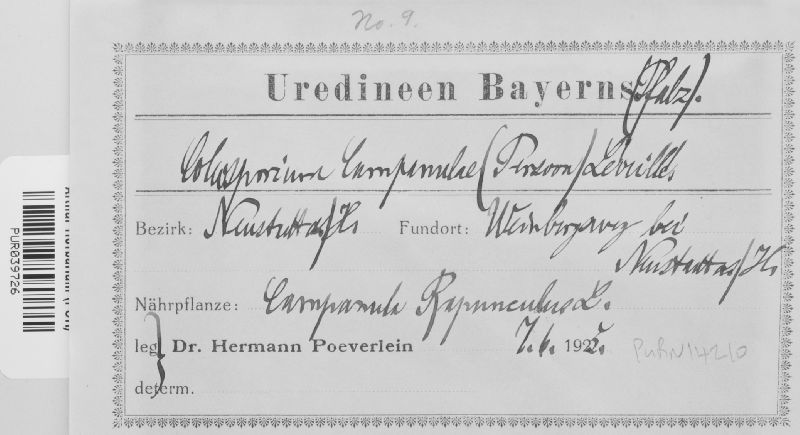 No. 9.
Uredineen Bayerns (Pfalz).
Coleosporium Campanulae (Persoon) Léveillé
Bezirk: Neustadt a/H. Fundort: Weinbergsweg bei
Neustadt a/H.
Nährpflanze: Campanula Rapunculus L.
leg. Dr. Hermann Poeverlein 7. 6. 1922.
determ.
PUR N14210
PUR039726